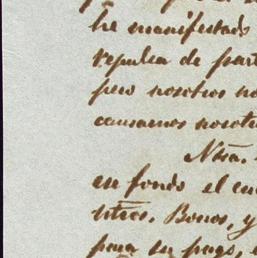 he manifestado
repulsa de part
pero nosotros no
causamos nosotr
Ntra.
en fondo el cu
ntros. Bonos, y
para su pago,